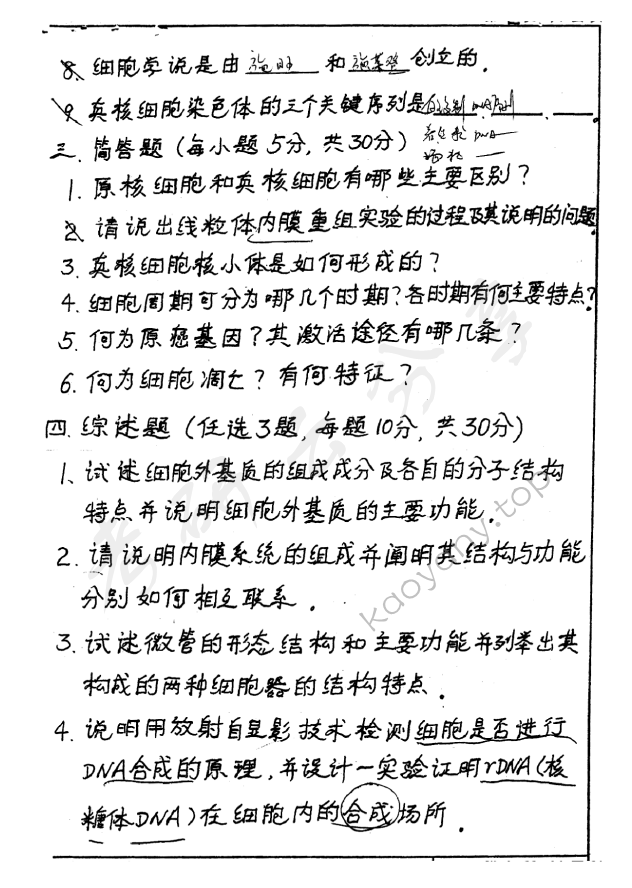 8. 细胞学说是由 施旺 和 施莱登 创立的.
9. 真核细胞染色体的三个关键序列是自主复制DNA序列
着丝粒DNA
端粒
三. 简答题(每小题5分,共30分)
1. 原核细胞和真核细胞有哪些主要区别?
2. 请说出线粒体内膜重组实验的过程及其说明的问题
3. 真核细胞核小体是如何形成的?
4. 细胞周期可分为哪几个时期?各时期有何主要特点?
5. 何为原癌基因?其激活途径有哪几条?
6. 何为细胞凋亡?有何特征?
四. 综述题(任选3题,每题10分,共30分)
1. 试述细胞外基质的组成成分及各自的分子结构
特点并说明细胞外基质的主要功能.
2. 请说明内膜系统的组成并阐明其结构与功能
分别如何相互联系.
3. 试述微管的形态结构和主要功能并列举出其
构成的两种细胞器的结构特点.
4. 说明用放射自显影技术检测细胞是否进行
DNA合成的原理,并设计一实验证明rDNA(核
糖体DNA)在细胞内的合成场所.
考研云分享
kaoyany.top